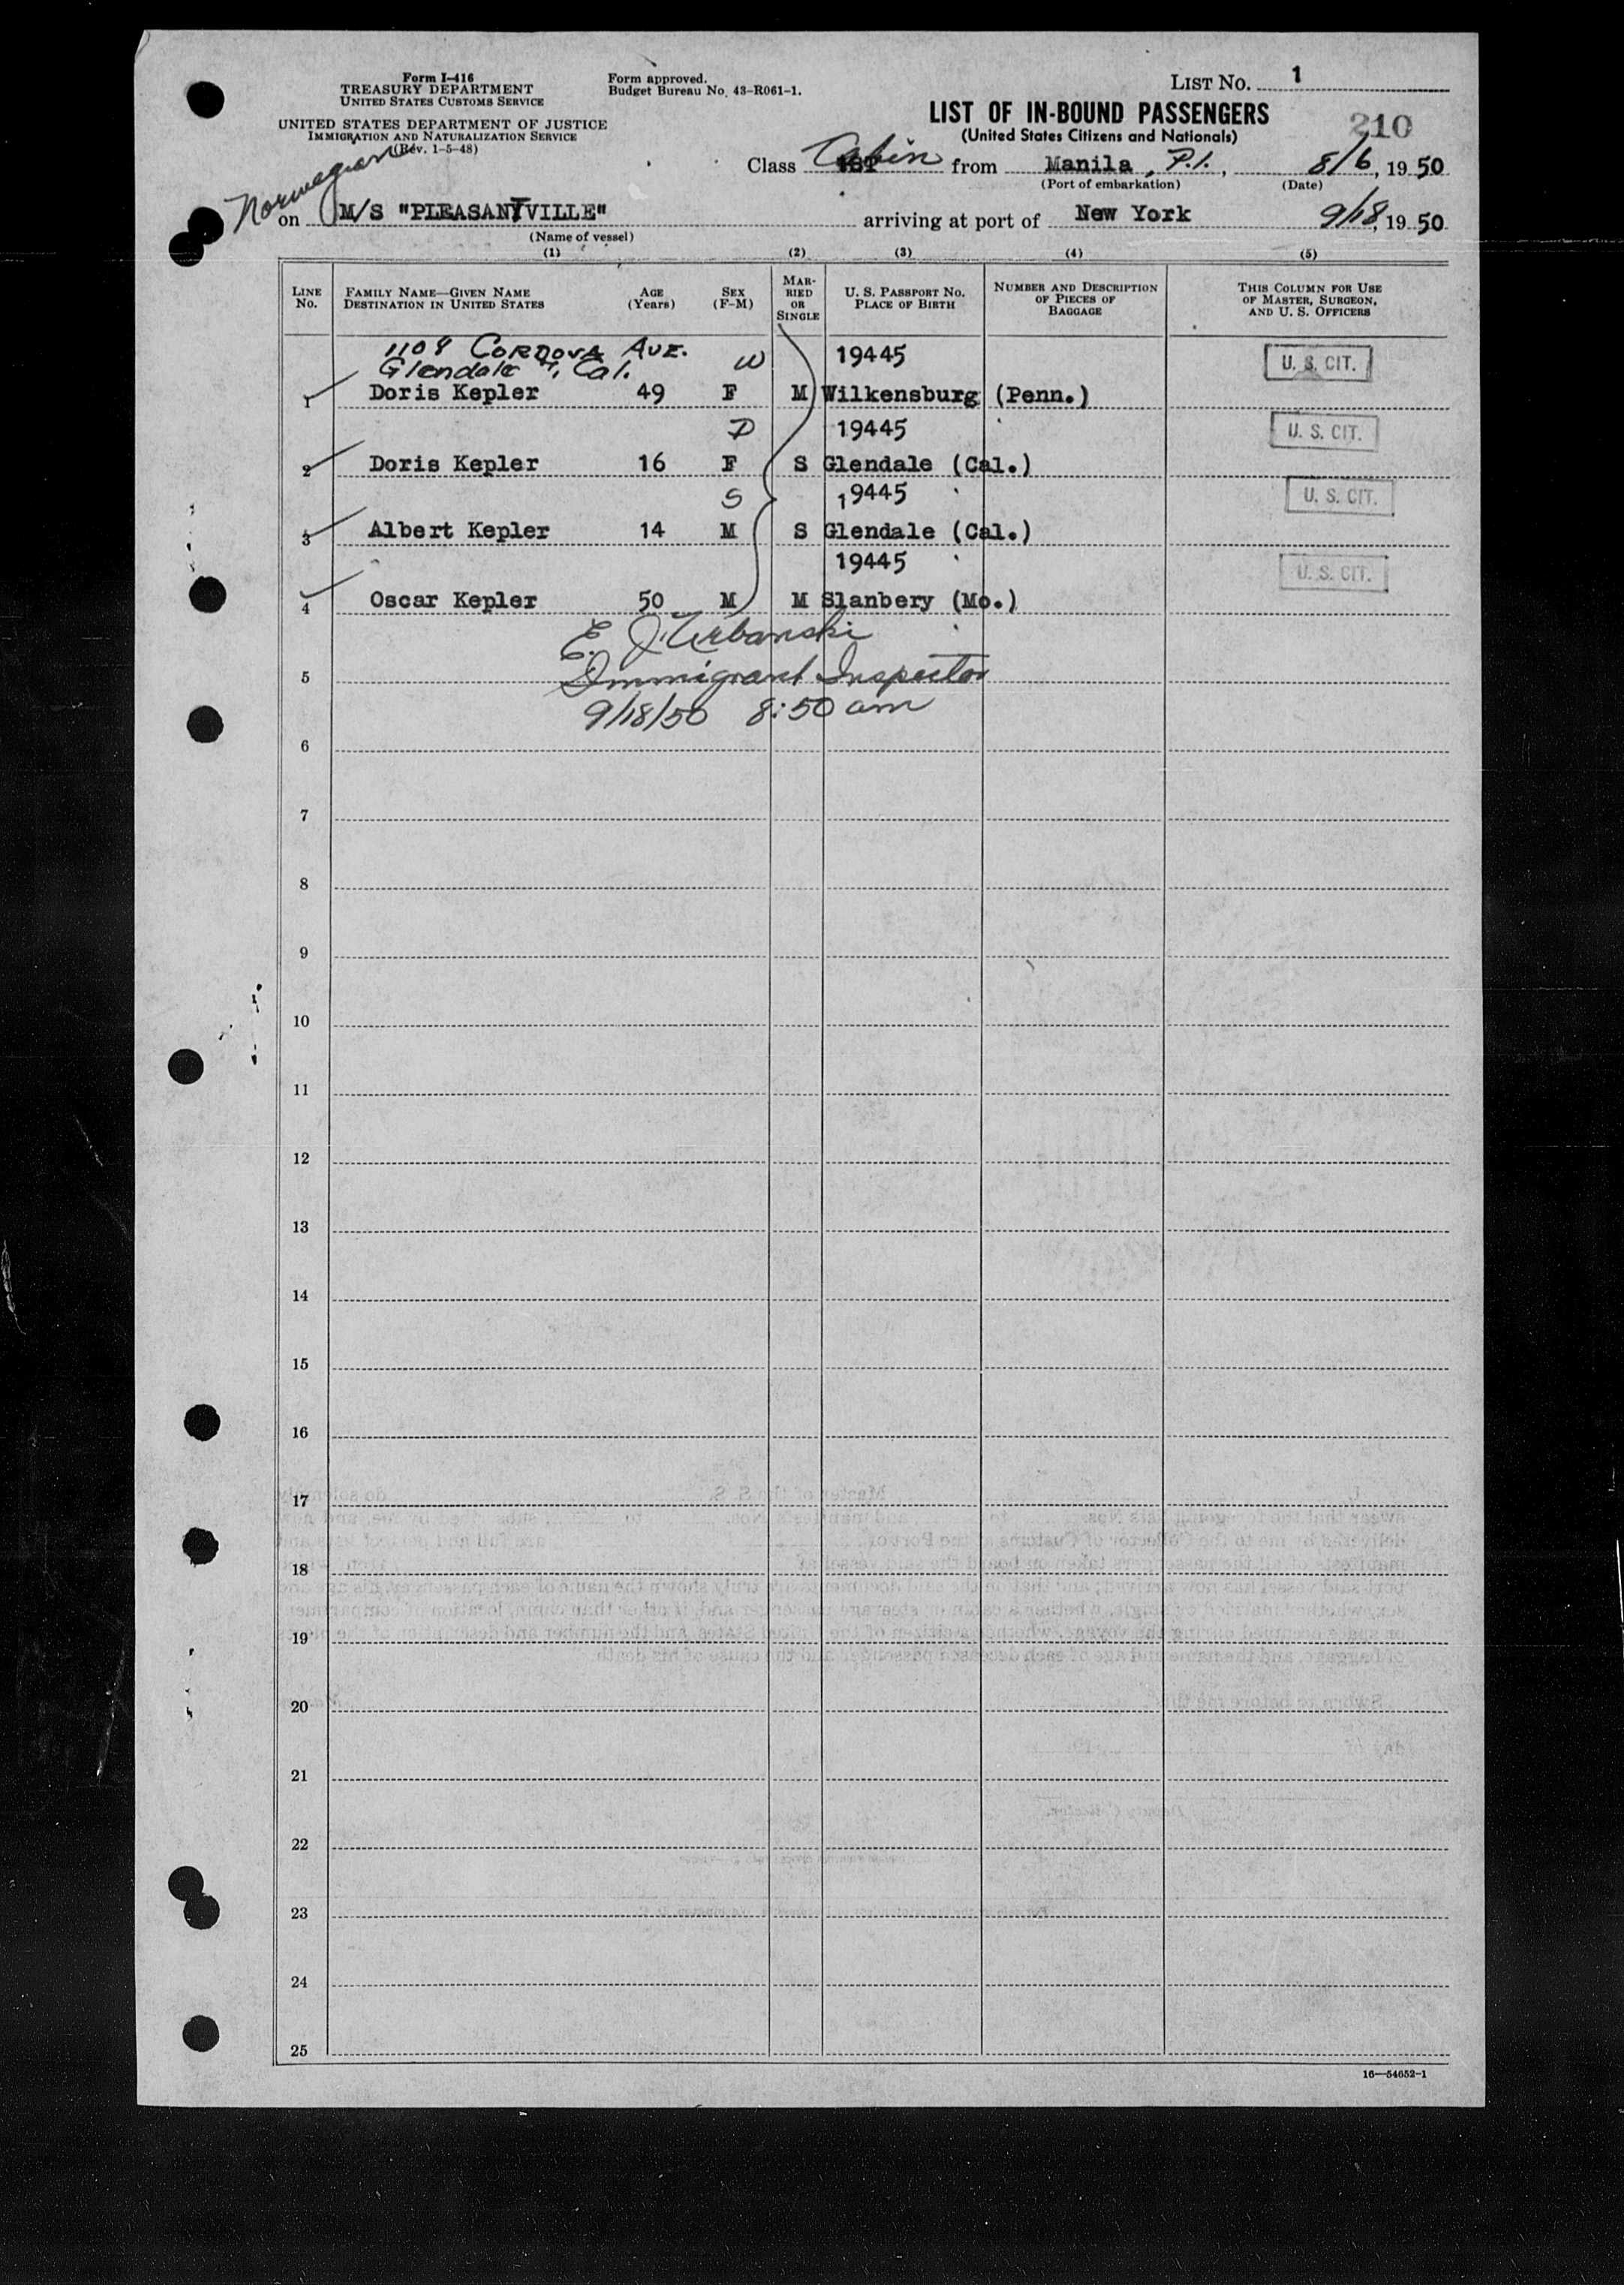 Form I-416
TREASURY DEPARTMENT
UNITED STATES CUSTOMS SERVICE
UNITED STATES DEPARTMENT OF JUSTICE
IMMIGRATION AND NATURALIZATION SERVICE
(Rev. 1-5-48)
Form approved.
Budget Bureau No. 43-R061-1.
LIST NO. 1
LIST OF IN-BOUND PASSENGERS
(United States Citizens and Nationals)
210
Class Cabin 1ST from Manila, P.I., 8/6, 1950
(Port of embarkation) (Date)
Norwegian
on M/S "PLEASANTVILLE" arriving at port of New York 9/18, 1950
(Name of vessel)
(1) (2) (3) (4) (5)
LINE NO. FAMILY NAME—GIVEN NAME DESTINATION IN UNITED STATES AGE (Years) SEX (F-M) MARRIED OR SINGLE U. S. PASSPORT NO. PLACE OF BIRTH NUMBER AND DESCRIPTION OF PIECES OF BAGGAGE THIS COLUMN FOR USE OF MASTER, SURGEON, AND U. S. OFFICERS
1109 CORDOVA AVE. W 19445 U. S. CIT.
Glendale 7, Cal.
1 Doris Kepler 49 F M Wilkensburg (Penn.)
D 19445 U. S. CIT.
2 Doris Kepler 16 F S Glendale (Cal.)
S 19445 U. S. CIT.
3 Albert Kepler 14 M S Glendale (Cal.)
19445 U. S. CIT.
4 Oscar Kepler 50 M M Slanbery (Mo.)
E. J. Urbanski
5 Immigrant Inspector
9/18/50 8:50 am
6
7
8
9
10
11
12
13
14
15
16
17
18
19
20
21
22
23
24
25
16—54652-1